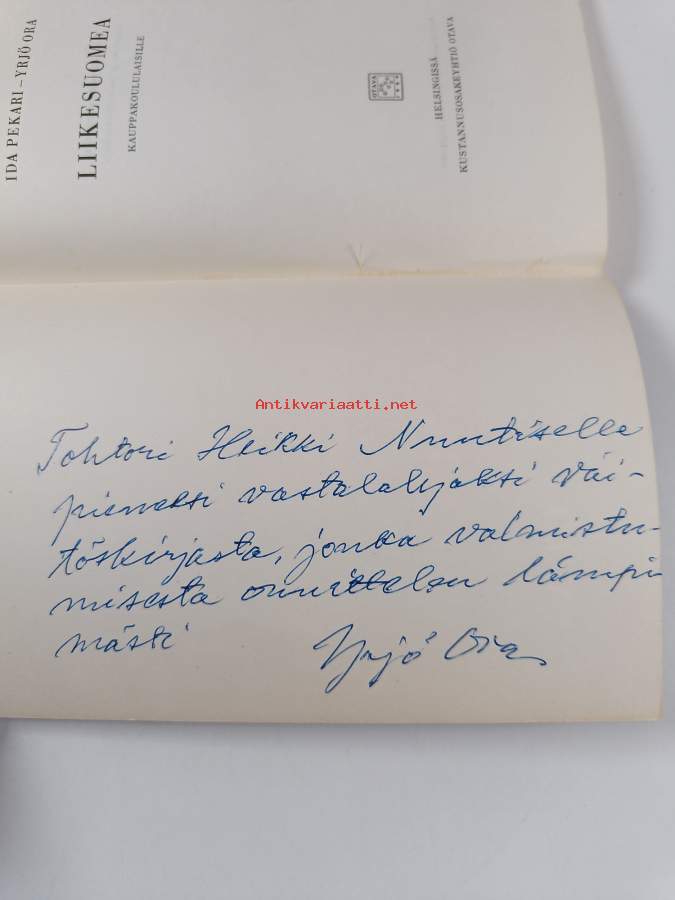 IDA PEKARI – YRJÖ ORA
LIIKESUOMEA
KAUPPAKOULULAISILLE
OTAVA
HELSINGISSÄ
KUSTANNUSOSAKEYHTIÖ OTAVA
Antikvariaatti.net
Tohtori Heikki Nuutiselle
pieneksi vastalahjaksi väi-
töskirjasta, jonka valmistu-
misesta onnittelen lämpi
mästi
Yrjö Ora